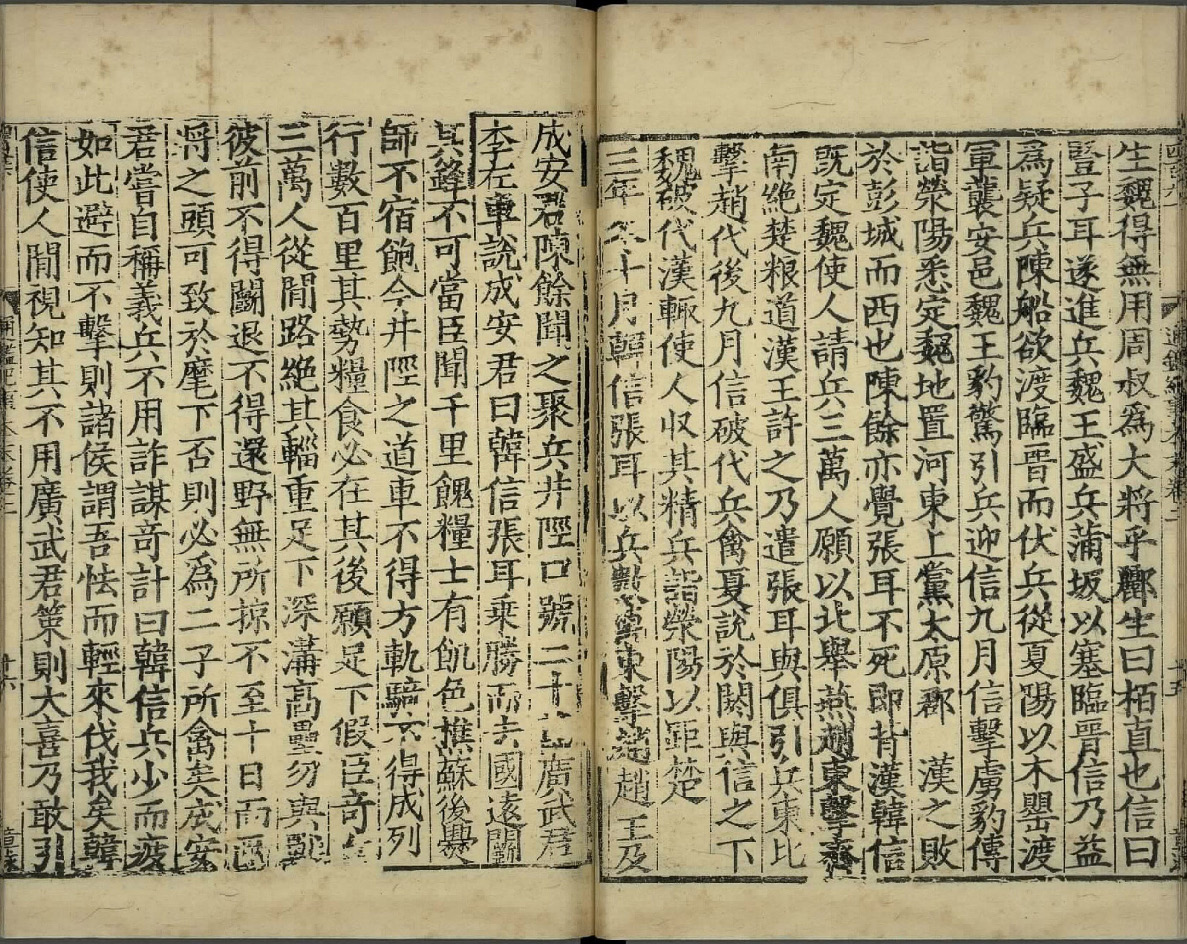 生魏得無用周叔爲大將乎酈生曰栢直也信曰
豎子耳遂進兵魏王盛兵蒲坂以塞臨晉信乃益
爲疑兵陳船欲渡臨晉而伏兵從夏陽以木罌渡
軍襲安邑魏王豹驚引兵迎信九月信擊虜豹傳
詣滎陽悉定魏地置河東上黨太原郡　漢之敗
於彭城而西也陳餘亦覺張耳不死即背漢韓信
既定魏使人請兵三萬人願以北舉燕趙東擊齊
南絶楚粮道漢王許之乃遣張耳與俱引兵東北
擊趙代後九月信破代兵禽夏說於閼與信之下
魏破代漢輙使人収其精兵詣滎陽以距楚
三年冬十月韓信張耳以兵數萬東擊趙趙王及
成安君陳餘聞之聚兵井陘口號二十萬廣武君
李左車說成安君曰韓信張耳乗勝而去國遠鬭
其鋒不可當臣聞千里餽糧士有飢色樵蘇後爨
師不宿飽今井陘之道車不得方軌騎不得成列
行數百里其勢糧食必在其後願足下假臣竒
三萬人從間路絶其輜重足下深溝高壘勿與戰
彼前不得鬭退不得還野無所掠不至十日而兩
將之頭可致於麾下否則必爲二子所禽矣成安
君嘗自稱義兵不用詐謀竒計曰韓信兵少而疲
如此避而不擊則諸侯謂吾怯而輕來伐我矣韓
信使人間視知其不用廣武君策則大喜乃敢引